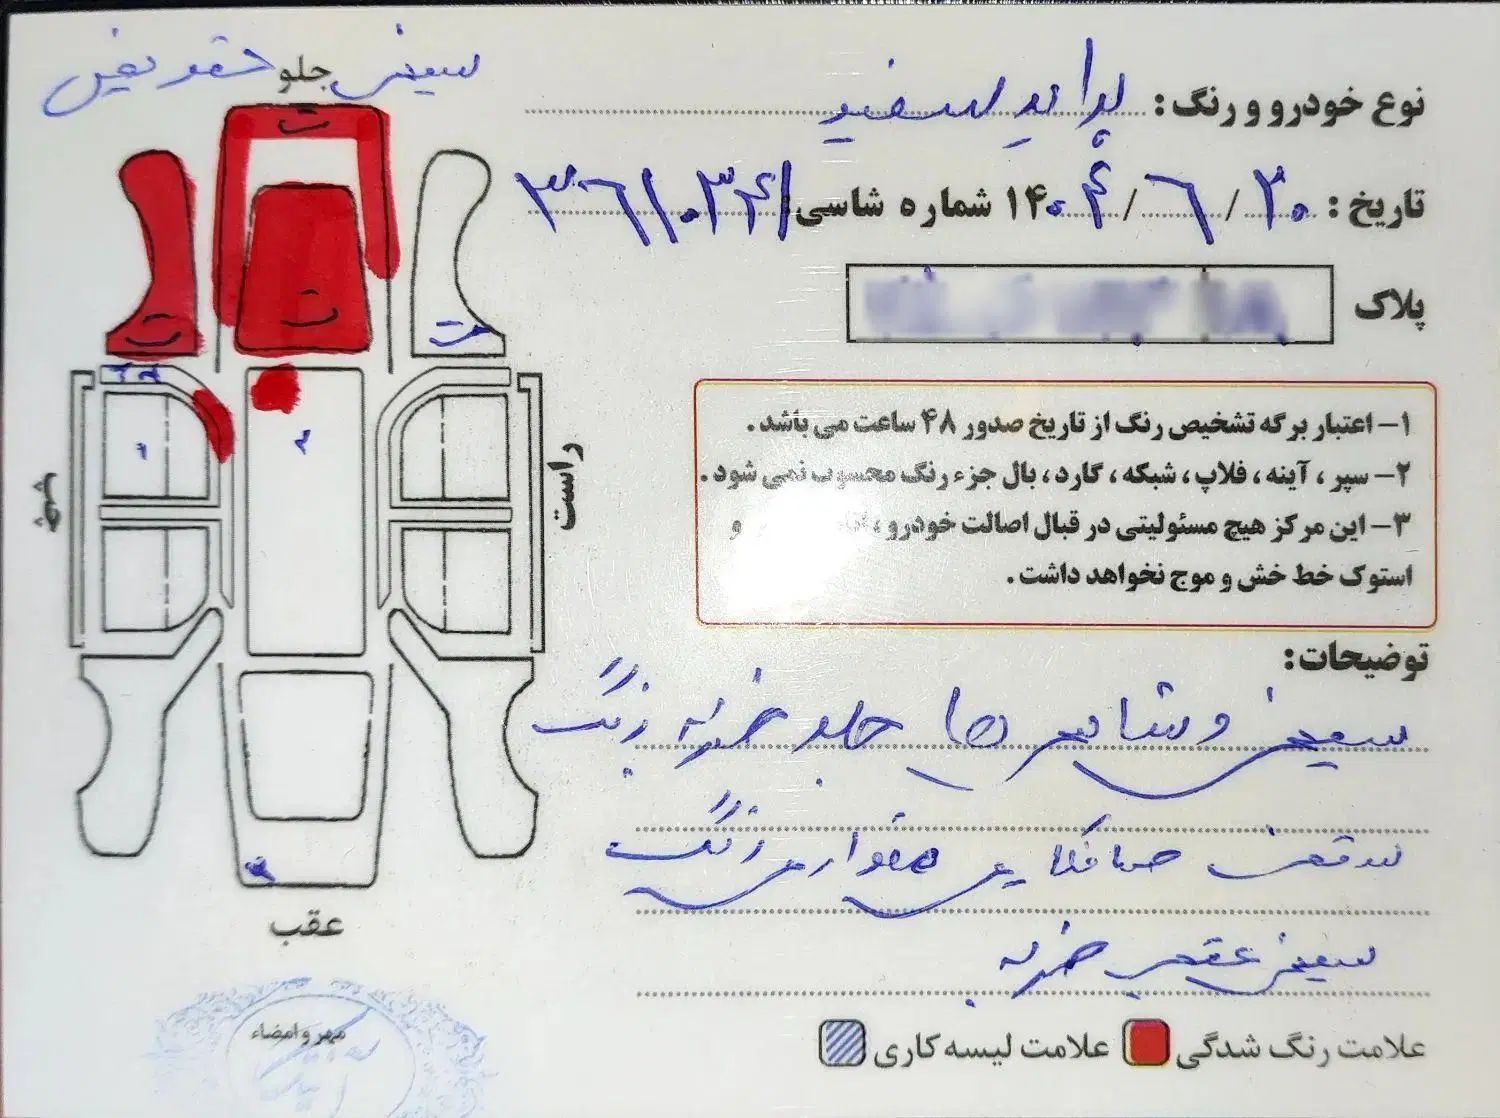 سینی جلو تعویض
نوع خودرو و رنگ: پراید سفید
تاریخ: ۳۰/۶/۱۴۰۴ شماره شاسی: ۳۶۱۰۳۴۱
پلاک
۱- اعتبار برگه تشخیص رنگ از تاریخ صدور ۴۸ ساعت می باشد.
۲- سپر، آینه، فلاپ، شبکه، گارد، بال جزء رنگ محسوب نمی شود.
۳- این مرکز هیچ مسئولیتی در قبال اصالت خودرو، و
استوک خط خش و موج نخواهد داشت.
توضیحات:
سینی و شاسی ها جلو ضربه رنگ
سقف صافکاری مقداری رنگ
سینی عقب ضربه
علامت رنگ شدگی
علامت لیسه کاری
ت
ت
ت
ت
چپ
راست
عقب
مهر و امضاء